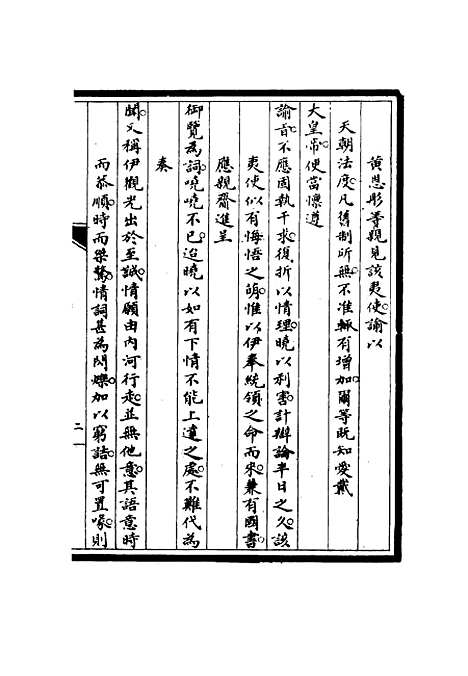 黄恩彤等親見該夷使諭以
天朝法度凡舊制所無不准輒有增加爾等既知愛戴
大皇帝便當懍遵
諭旨不應固執干求復折以情理曉以利害計辯論半日之久該
夷使似有悔悟之萌惟以伊奉統領之命而來兼有國書
應親齎進呈
御覽為詞嘵嘵不已迨曉以如有下情不能上達之處不難代為
奏
聞又稱伊觀光出於至誠情願由內河行走並無他意其語意時
而恭順時而桀驁情詞甚為閃爍加以窮詰無可置喙則
二